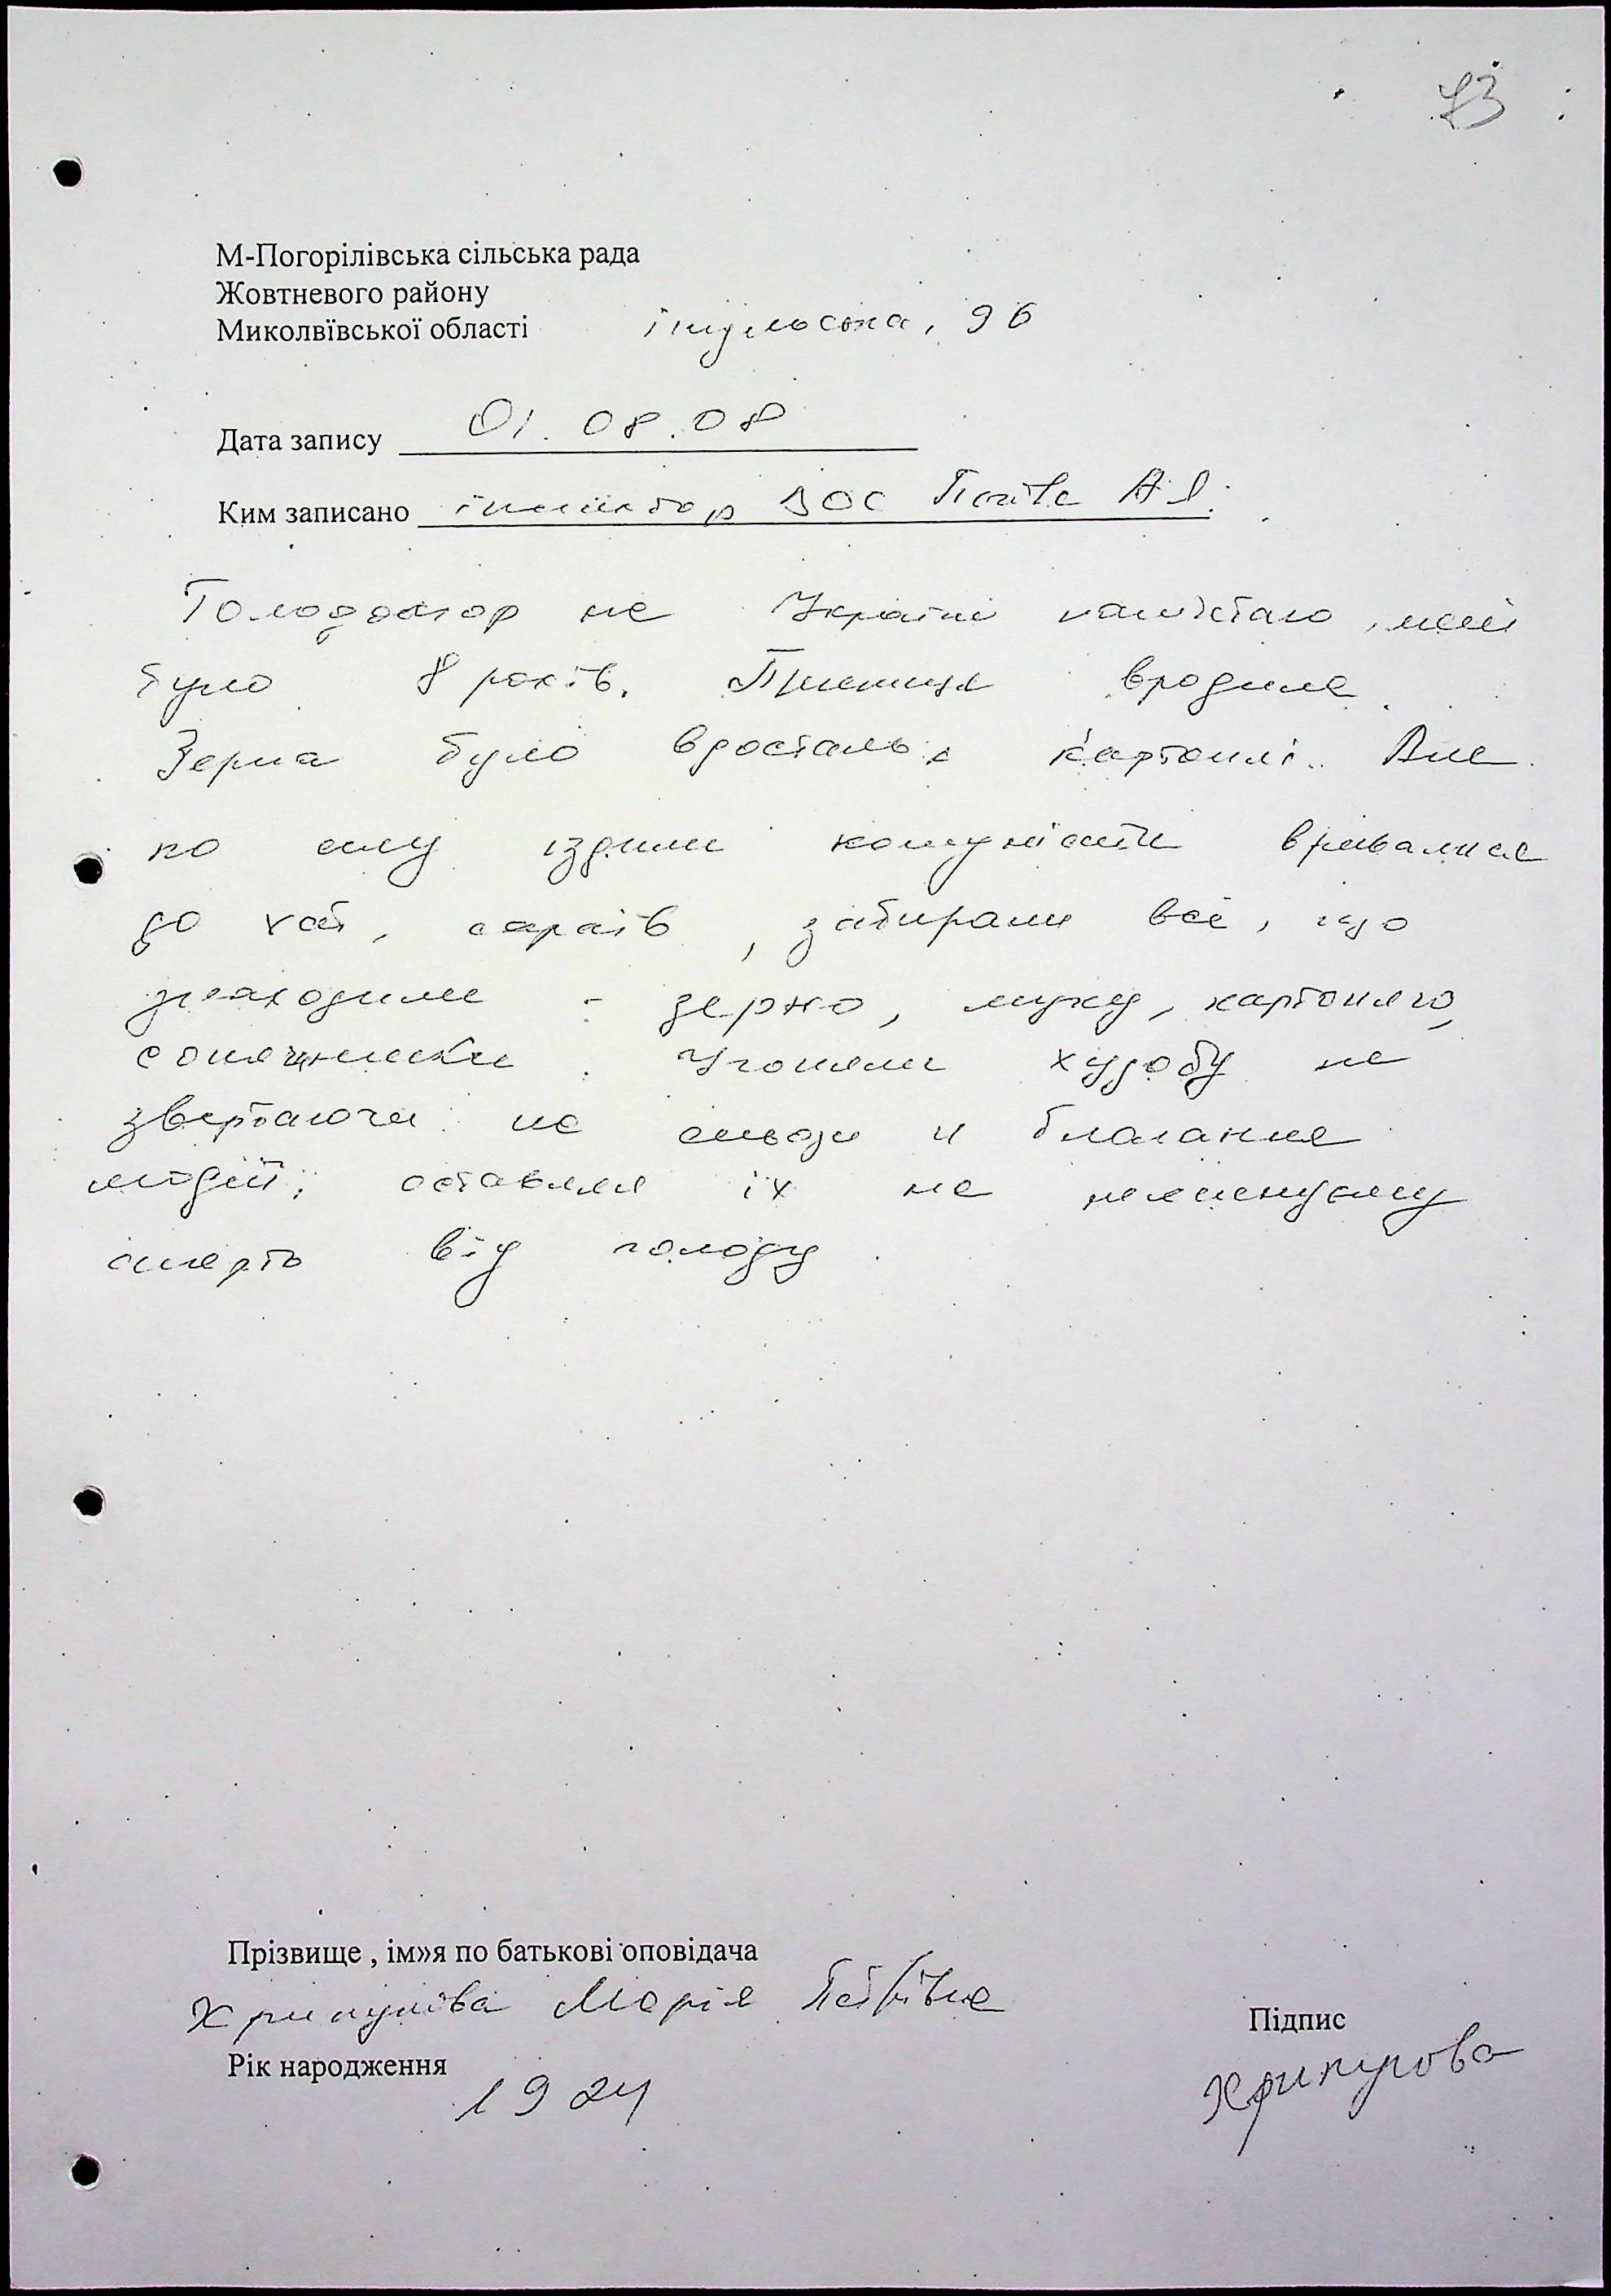 73
М-Погорілівська сільська рада
Жовтневого району
Миколвївської області інгульська, 96
Дата запису 01.08.08
Ким записано інспектор ВОС А.І.
Голодомор на Україні пам'ятаю, мені
було 8 років. Пшениця вродила.
Зерна було вдосталь, картоплі. Але
по селу їздили комуністи врывалися
до хат, сараїв, забирали все, що
знаходили - зерно, муку, картоплю,
соняшники. Угоняли худобу не
звертаючи на сльози и благання
людей, оставляя їх на неминуєму
смерть від голоду.
Прізвище , ім»я по батькові оповідача
Хрипунова Марія Петрівна
Підпис
Рік народження 1924
Хрипунова